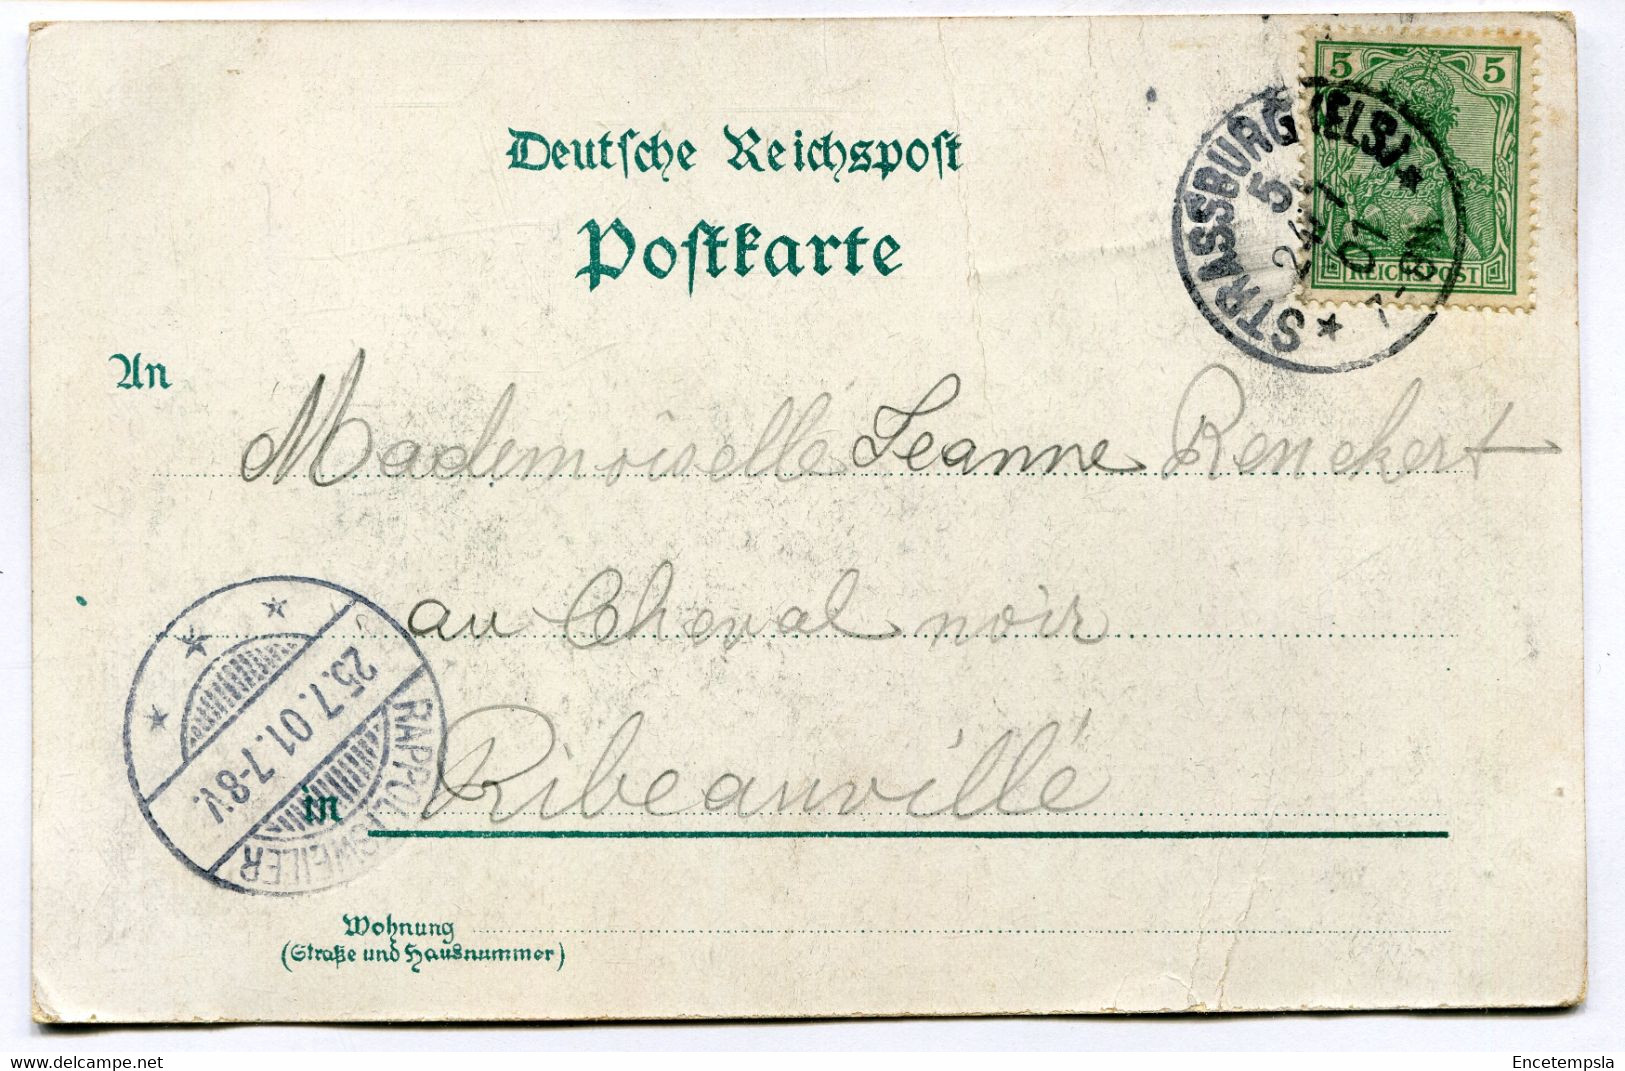 5 5
REICHSPOST
STRASSBURG (ELS.)
5
24 7
01
7-8N
Deutsche Reichspost
Postkarte
An
Mademoiselle Jeanne Renckert
au Cheval noir
in Ribeauvillé
RAPPOLTSWEILER
25.7.01.7-8V.
Wohnung
(Straße und Hausnummer)
delcampe.net
Encetempsla